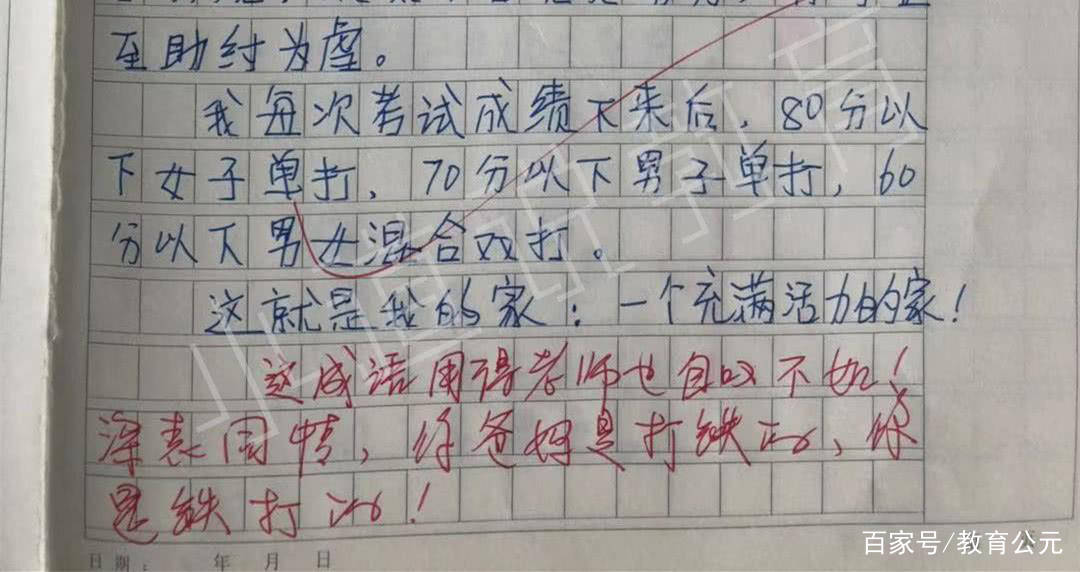 至助纣为虐。
我每次考试成绩下来后，80分以
下女子单打，70分以下男子单打，60
分以下男女混合双打。
这就是我的家：一个充满活力的家！
这成语用得老师也自叹不如！
深表同情，你爸妈是打铁的，你
是铁打的！
日期： 年 月 日
百家号/教育公元